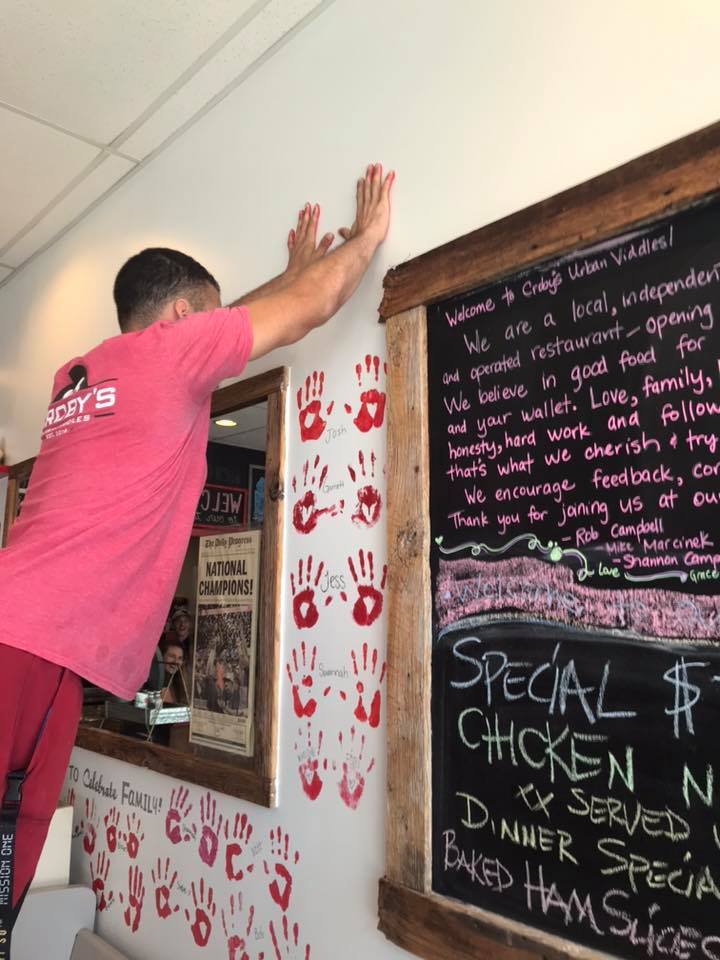 RDBY'S
WELC
The Daily Progress
NATIONAL
CHAMPIONS!
Josh
Garrett
Jess
Savannah
TO Celebrate FAMILY!
MISSION ONE
Welcome to Crdby's Urban Viddles!
We are a local, independent
and operated restaurant - opening
We believe in good food for
and your wallet. Love, family,
honesty, hard work and follow
that's what we cherish & try
We encourage feedback, co
Thank you for joining us at ou
- Rob Campbell
Mike Marcinek
- Shannon Camp
Love Grace
Welcome to
SPECIAL $
CHICKEN N
XX SERVED
DINNER SPECIA
BAKED HAM SLICED